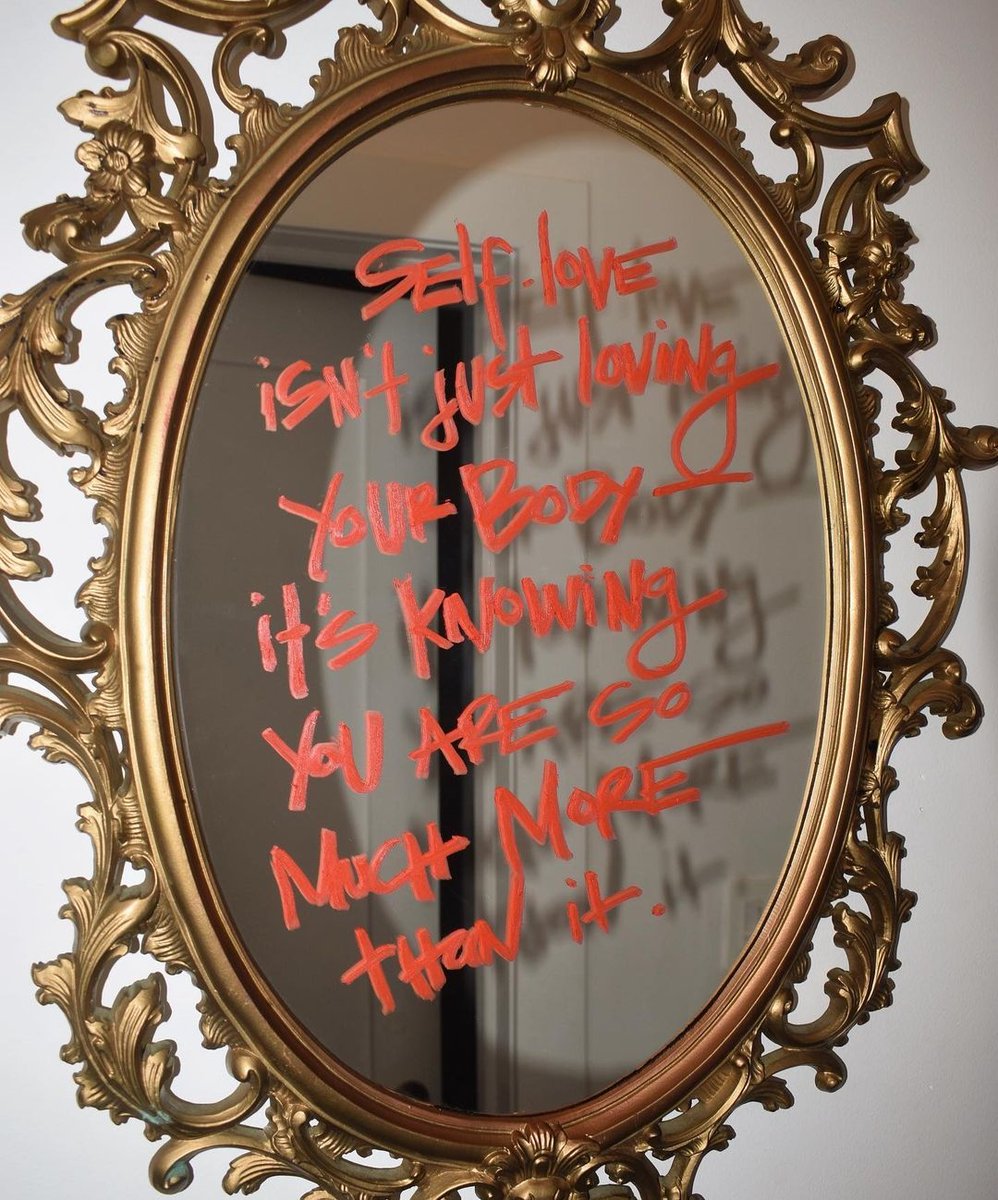 SElf-lovE
isn't just loving
YOUR BODY
it's KNOWiNg
YOU ARE SO
MUCH MORE
tHaN it.